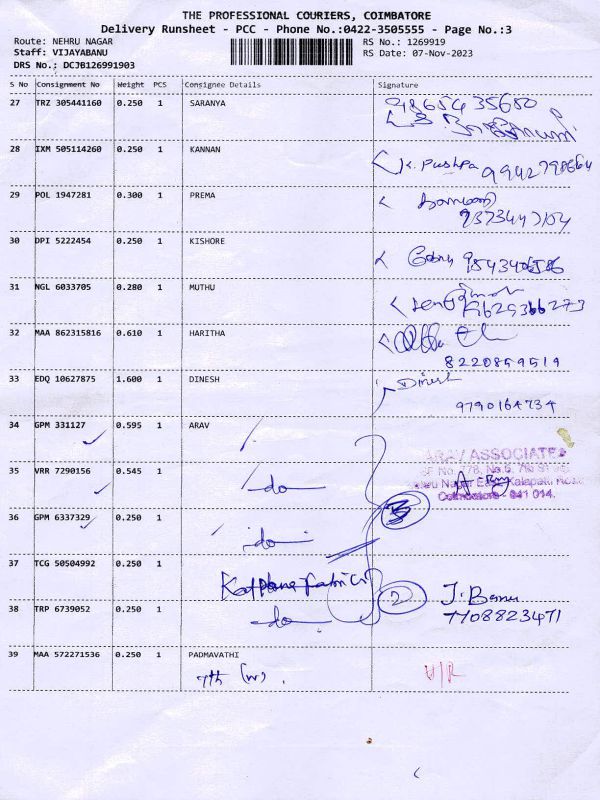 THE PROFESSIONAL COURIERS, COIMBATORE
Delivery Runsheet - PCC - Phone No.:0422-3505555 - Page No.:3
Route: NEHRU NAGAR RS No.: 1269919
Staff: VIJAYABANU RS Date: 07-Nov-2023
DRS No.: DCJB126991903
S No Consignment No Weight PCS Consignee Details Signature
27 TRZ 305441160 0.250 1 SARANYA 9865435680
28 IXM 505114260 0.250 1 KANNAN K. Pushpa 9942798664
29 POL 1947281 0.300 1 PREMA
9373447104
30 DPI 5222454 0.250 1 KISHORE
31 NGL 6033705 0.280 1 MUTHU
9629366273
32 MAA 862315816 0.610 1 HARITHA
8220859519
33 EDQ 10627875 1.600 1 DINESH Dinesh
9790164734
34 GPM 331127 0.595 1 ARAV
ARAV ASSOCIATES
35 VRR 7290156 0.545 1 do
Coimbatore - 641 014.
36 GPM 6337329 0.250 1 do 3
37 TCG 50504992 0.250 1 2
38 TRP 6739052 0.250 1 do 7708823471
39 MAA 572271536 0.250 1 PADMAVATHI
7th (W).